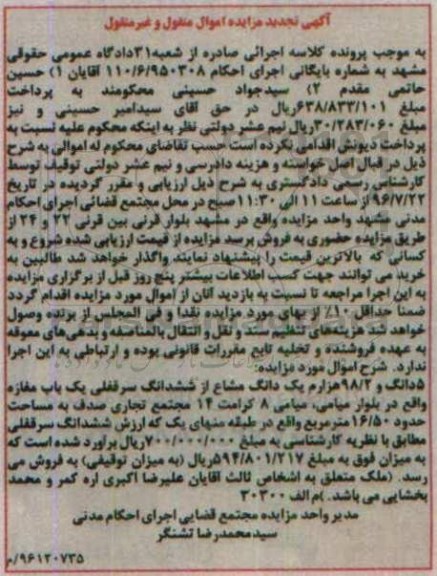 آگهی تجدید مزایده اموال منقول و غیرمنقول
به موجب پرونده کلاسه اجرائی صادره از شعبه۳۱دادگاه عمومی حقوقی
مشهد به شماره بایگانی اجرای احکام ۱۱۰/۶/۹۵۰۳۰۸ آقایان ۱) حسین
حاتمی مقدم ۲) سیدجواد حسینی محکومند به پرداخت
مبلغ ۶۳۸/۸۳۳/۱۰۱ریال در حق آقای سیدامیر حسینی و نیز
مبلغ ۳۰/۲۸۳/۰۶۰ریال نیم عشر دولتی نظر به اینکه محکوم علیه نسبت به
پرداخت دیونش اقدامی نکرده است حسب تقاضای محکوم له اموالی به شرح
ذیل در قبال اصل خواسته و هزینه دادرسی و نیم عشر دولتی توقیف توسط
کارشناس رسمی دادگستری به شرح ذیل ارزیابی و مقرر گردیده در تاریخ
۹۶/۷/۲۲ از ساعت ۱۱ الی ۱۱:۳۰ صبح در محل مجتمع قضائی اجرای احکام
مدنی مشهد واحد مزایده واقع در مشهد بلوار قرنی بین قرنی ۲۲ و ۲۴ از
طریق مزایده حضوری به فروش برسد مزایده از قیمت ارزیابی شده شروع و به
کسانی که بالاترین قیمت را پیشنهاد نمایند واگذار خواهد شد طالبین به
خرید می توانند جهت کسب اطلاعات بیشتر پنج روز قبل از برگزاری مزایده
به این اجرا مراجعه تا نسبت به بازدید آنان از اموال مورد مزایده اقدام گردد
ضمنا حداقل ۱۰٪ از بهای مورد مزایده نقدا و فی المجلس از برنده وصول
خواهد شد هزینه‌های تنظیم سند و نقل و انتقال بالمناصفه و بدهی‌های معوقه
به عهده فروشنده و تخلیه تابع مقررات قانونی بوده و ارتباطی به این اجرا
ندارد. شرح اموال مورد مزایده:
۵دانگ و ۹۸/۲هزارم یک دانگ مشاع از ششدانگ سرقفلی یک باب مغازه
واقع در بلوار میامی، میامی ۸ کرامت ۱۴ مجتمع تجاری صدف به مساحت
حدود ۱۶/۵۰مترمربع واقع در طبقه منهای یک که ارزش ششدانگ سرقفلی
مطابق با نظریه کارشناسی به مبلغ ۷۰۰/۰۰۰/۰۰۰ریال برآورد شده است که
به میزان فوق به مبلغ ۵۹۴/۸۰۱/۲۱۷ریال (به میزان توقیفی) به فروش می
رسد. (ملک متعلق به اشخاص ثالث آقایان علیرضا اکبری اره کمر و محمد
بخشایی می باشد. )م الف ۳۰۳۰۰
مدیر واحد مزایده مجتمع قضایی اجرای احکام مدنی
سیدمحمدرضا تشنگر
۹۶۱۲۰۷۳۵/م